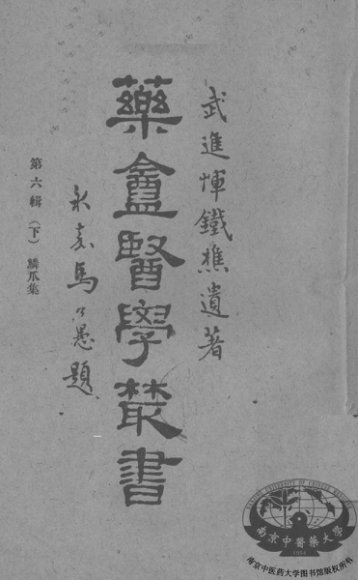 武進惲鐵樵遺著
藥盦醫學叢書
永嘉馬公愚題
第六輯（下）鱗爪集
南京中醫藥大學
1954
南京中医药大学图书馆版权所有